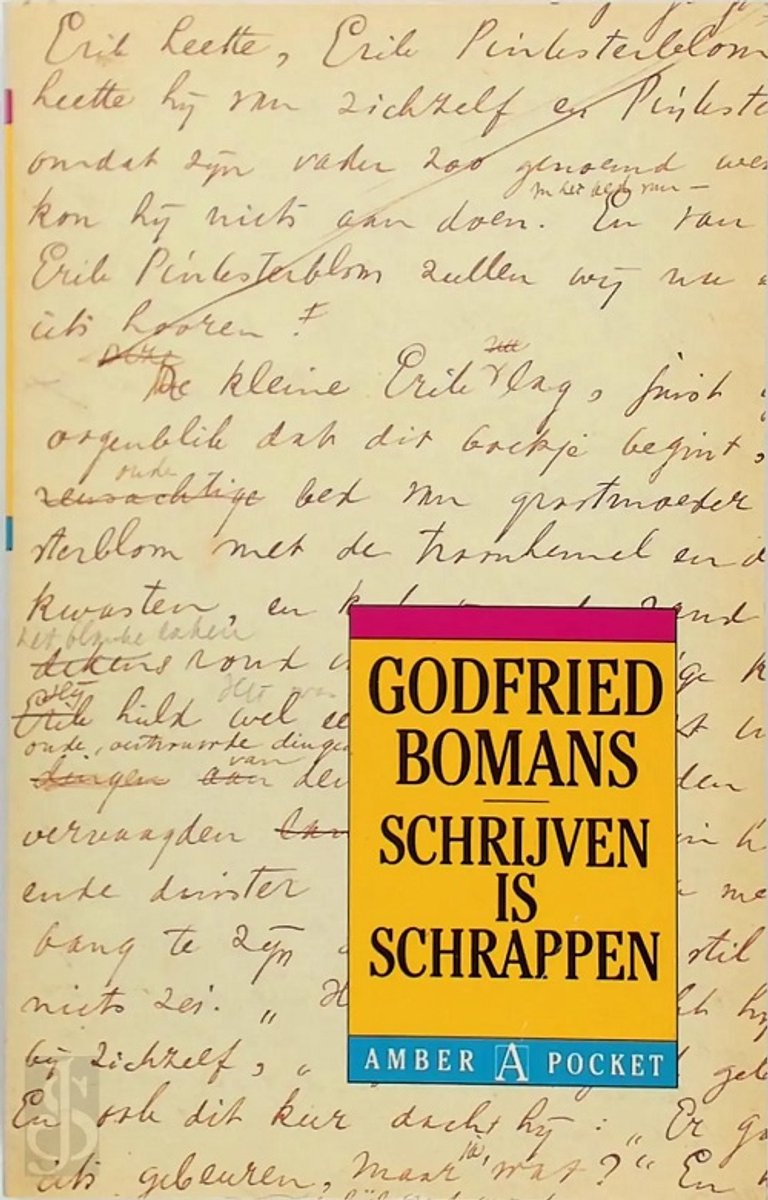 Erik heette, Erik Pinksterblom
heette hij van zichzelf en Pinkste
omdat zijn vader zoo genoemd wer
in het bed van —
kon hij niets aan doen. En van
Erik Pinksterblom zullen wij nu
iets hooren!
De kleine Erik lag, juist
oogenblik dat dit boekje begint,
oude
reusachtige bed van grootmoeder
sterblom met de troonhemel en d
kwasten, en
het blanke laken
dekens rond
Hij
Erik hield wel
oude, vertrouwde dingen
van
dingen aan den
vervaagden
ende duister
bang te zijn stil
niets zei. „
bij zichzelf, „
En ook dit keer dacht hij: „Er ga
ja,
iets gebeuren, maar wat?“ En
GODFRIED
BOMANS
SCHRIJVEN
IS
SCHRAPPEN
AMBER A POCKET